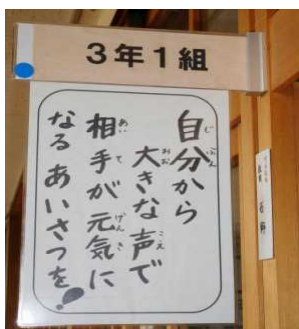 3年1組
自分から
大きな声で
相手が元気に
なるあいさつを!